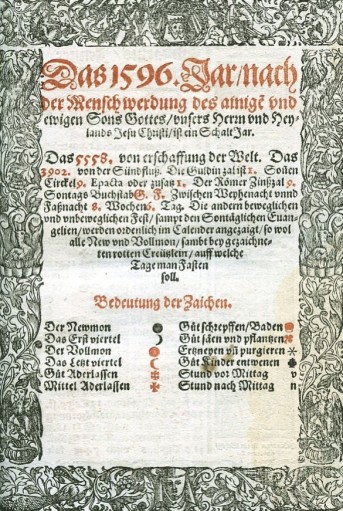 Das 1596. Jar/nach
der Menschwerdung des ainigē vnd
ewigen Sons Gottes/vnsers Herrn vnd Hey-
lands Jesu Christi/ist ein Schalt Jar.
Das 5558. von erschaffung der Welt. Das
3902. von der Sündfluß. Die Guldin zal ist 1. Sonen
Circkel 9. Epacta oder zusatz 1. Der Römer Zinßzal 9.
Sontags Buchstab G. F. Zwischen Weyhenacht vnnd
Faßnacht 8. Wochen 6. Tag. Die andern beweglichen
vnd vnbeweglichen Fest/sampt den Sontäglichen Euan-
gelien/werden ordenlich im Calender angezaigt/so wol
alle New vnd Vollmon/sambt bey gezaichne-
ten rotten Creützlein/auff welche
Tage man Fasten
soll.
Bedeutung der Zaichen.
Der Newmon
Das Erst viertel
Der Vollmon
Das Letzt viertel
Gůt Aderlassen
Mittel Aderlassen
Gůt schrepffen/Baden
Gůt säen vnd pflantzen
Ertzneyen vñ purgieren
Gůt Kinder entwenen
Stund vor Mittag v
Stund nach Mittag n